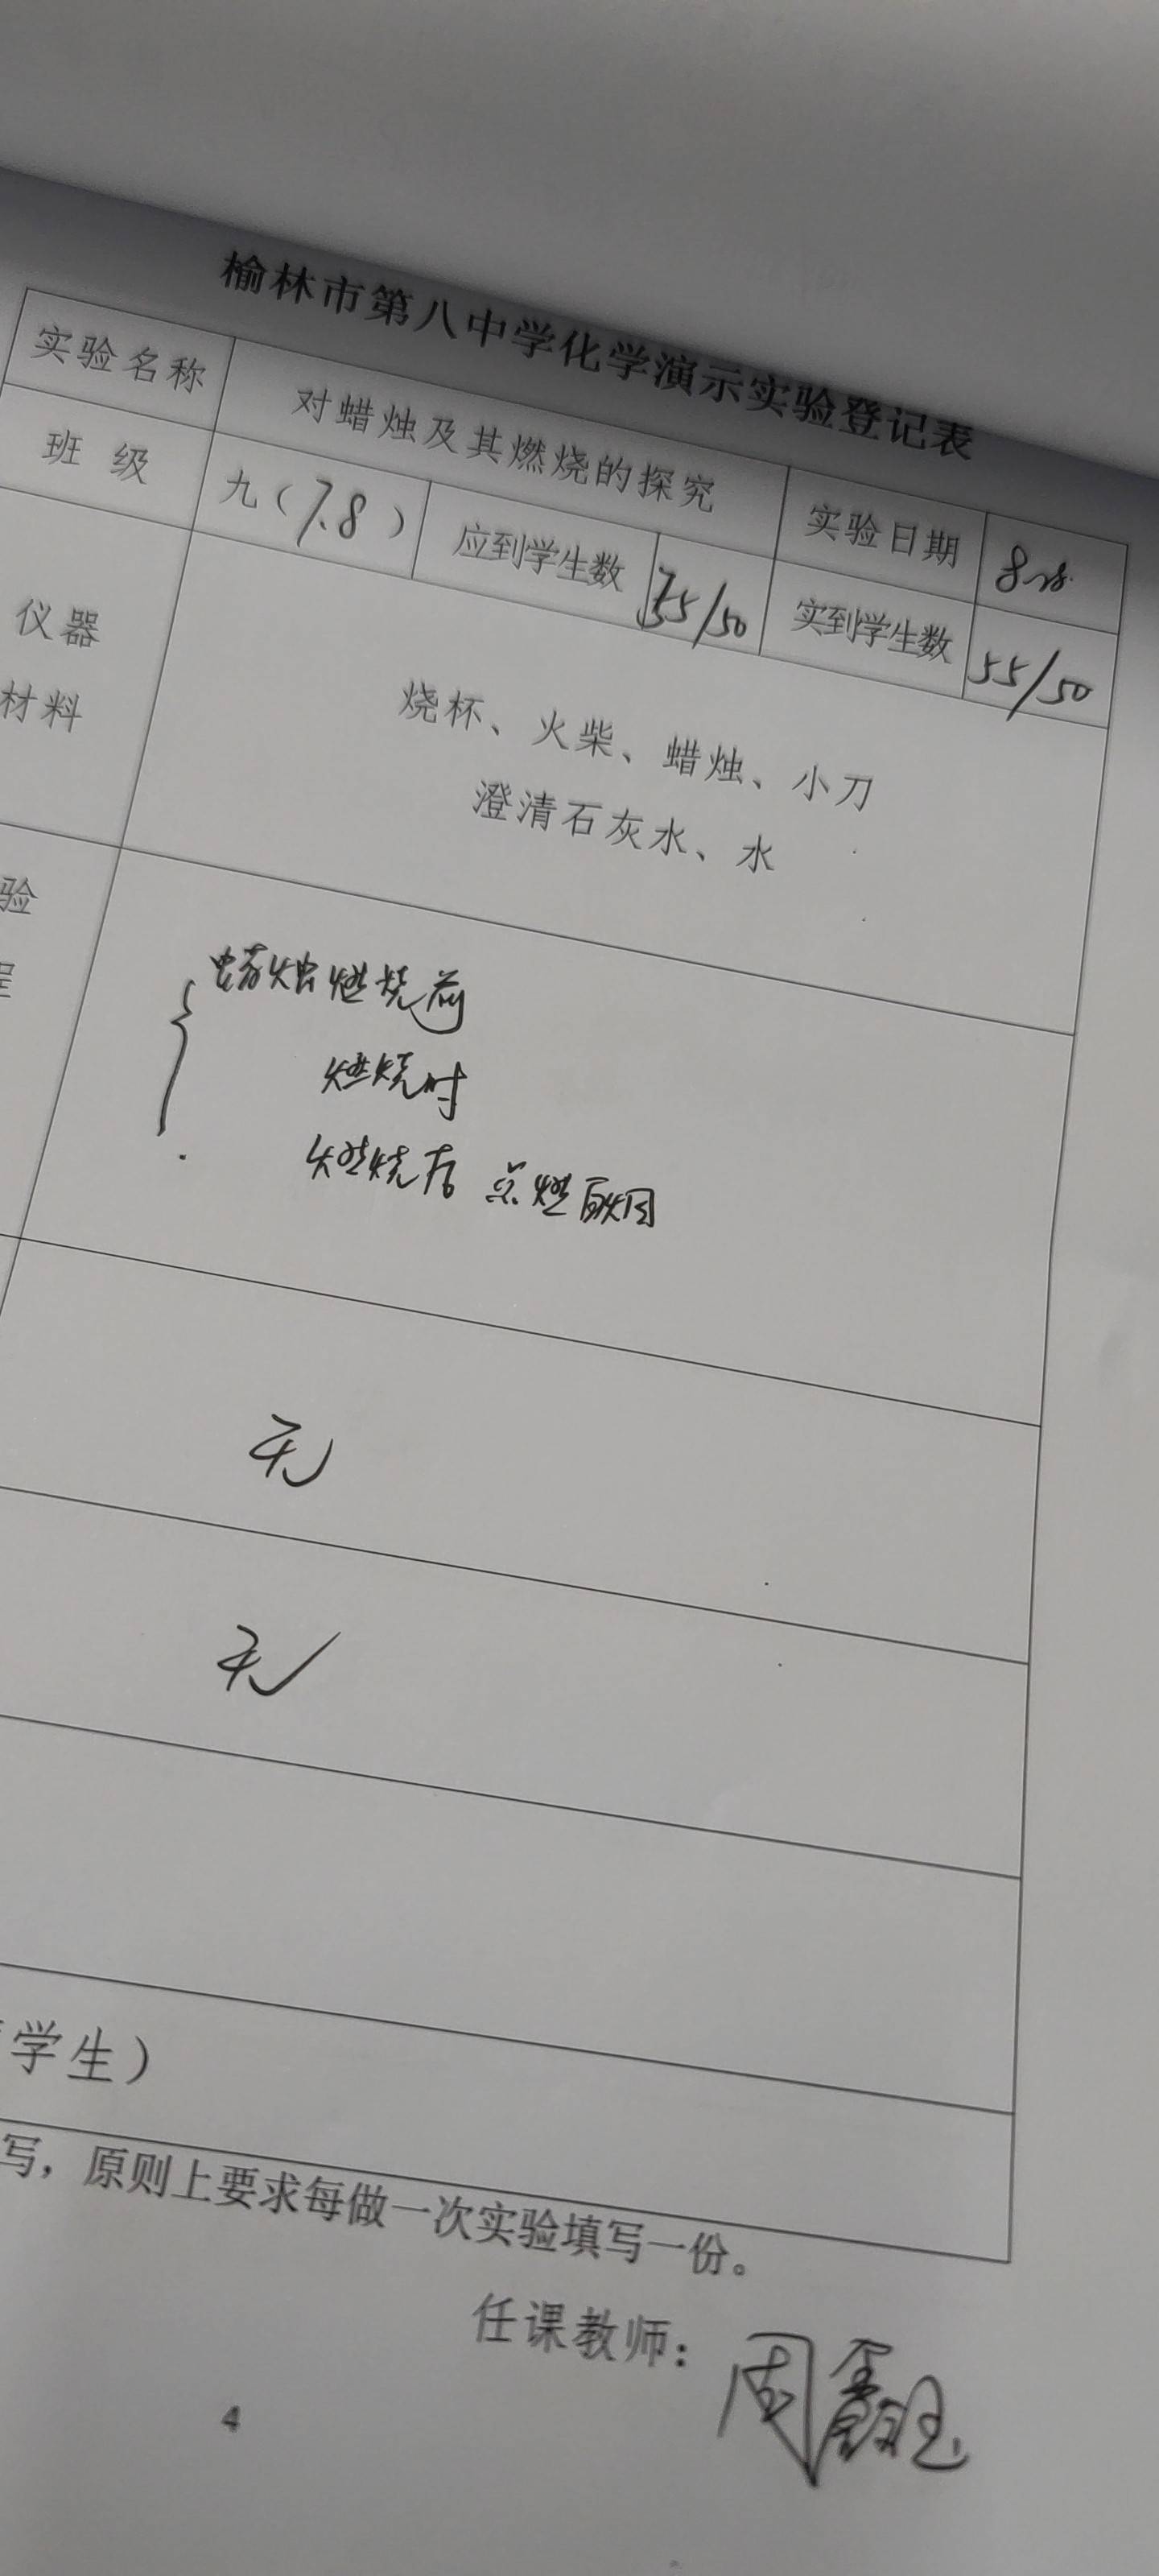 榆林市第八中学化学演示实验登记表
实验名称 对蜡烛及其燃烧的探究 实验日期
班 级 九（7.8） 应到学生数 55/50 实到学生数 55/50
仪器
材料
烧杯、火柴、蜡烛、小刀
澄清石灰水、水
验
程
蜡烛燃烧前
燃烧时
燃烧后 点燃白烟
无
无
学生）
写，原则上要求每做一次实验填写一份。
任课教师：周鑫钰
4